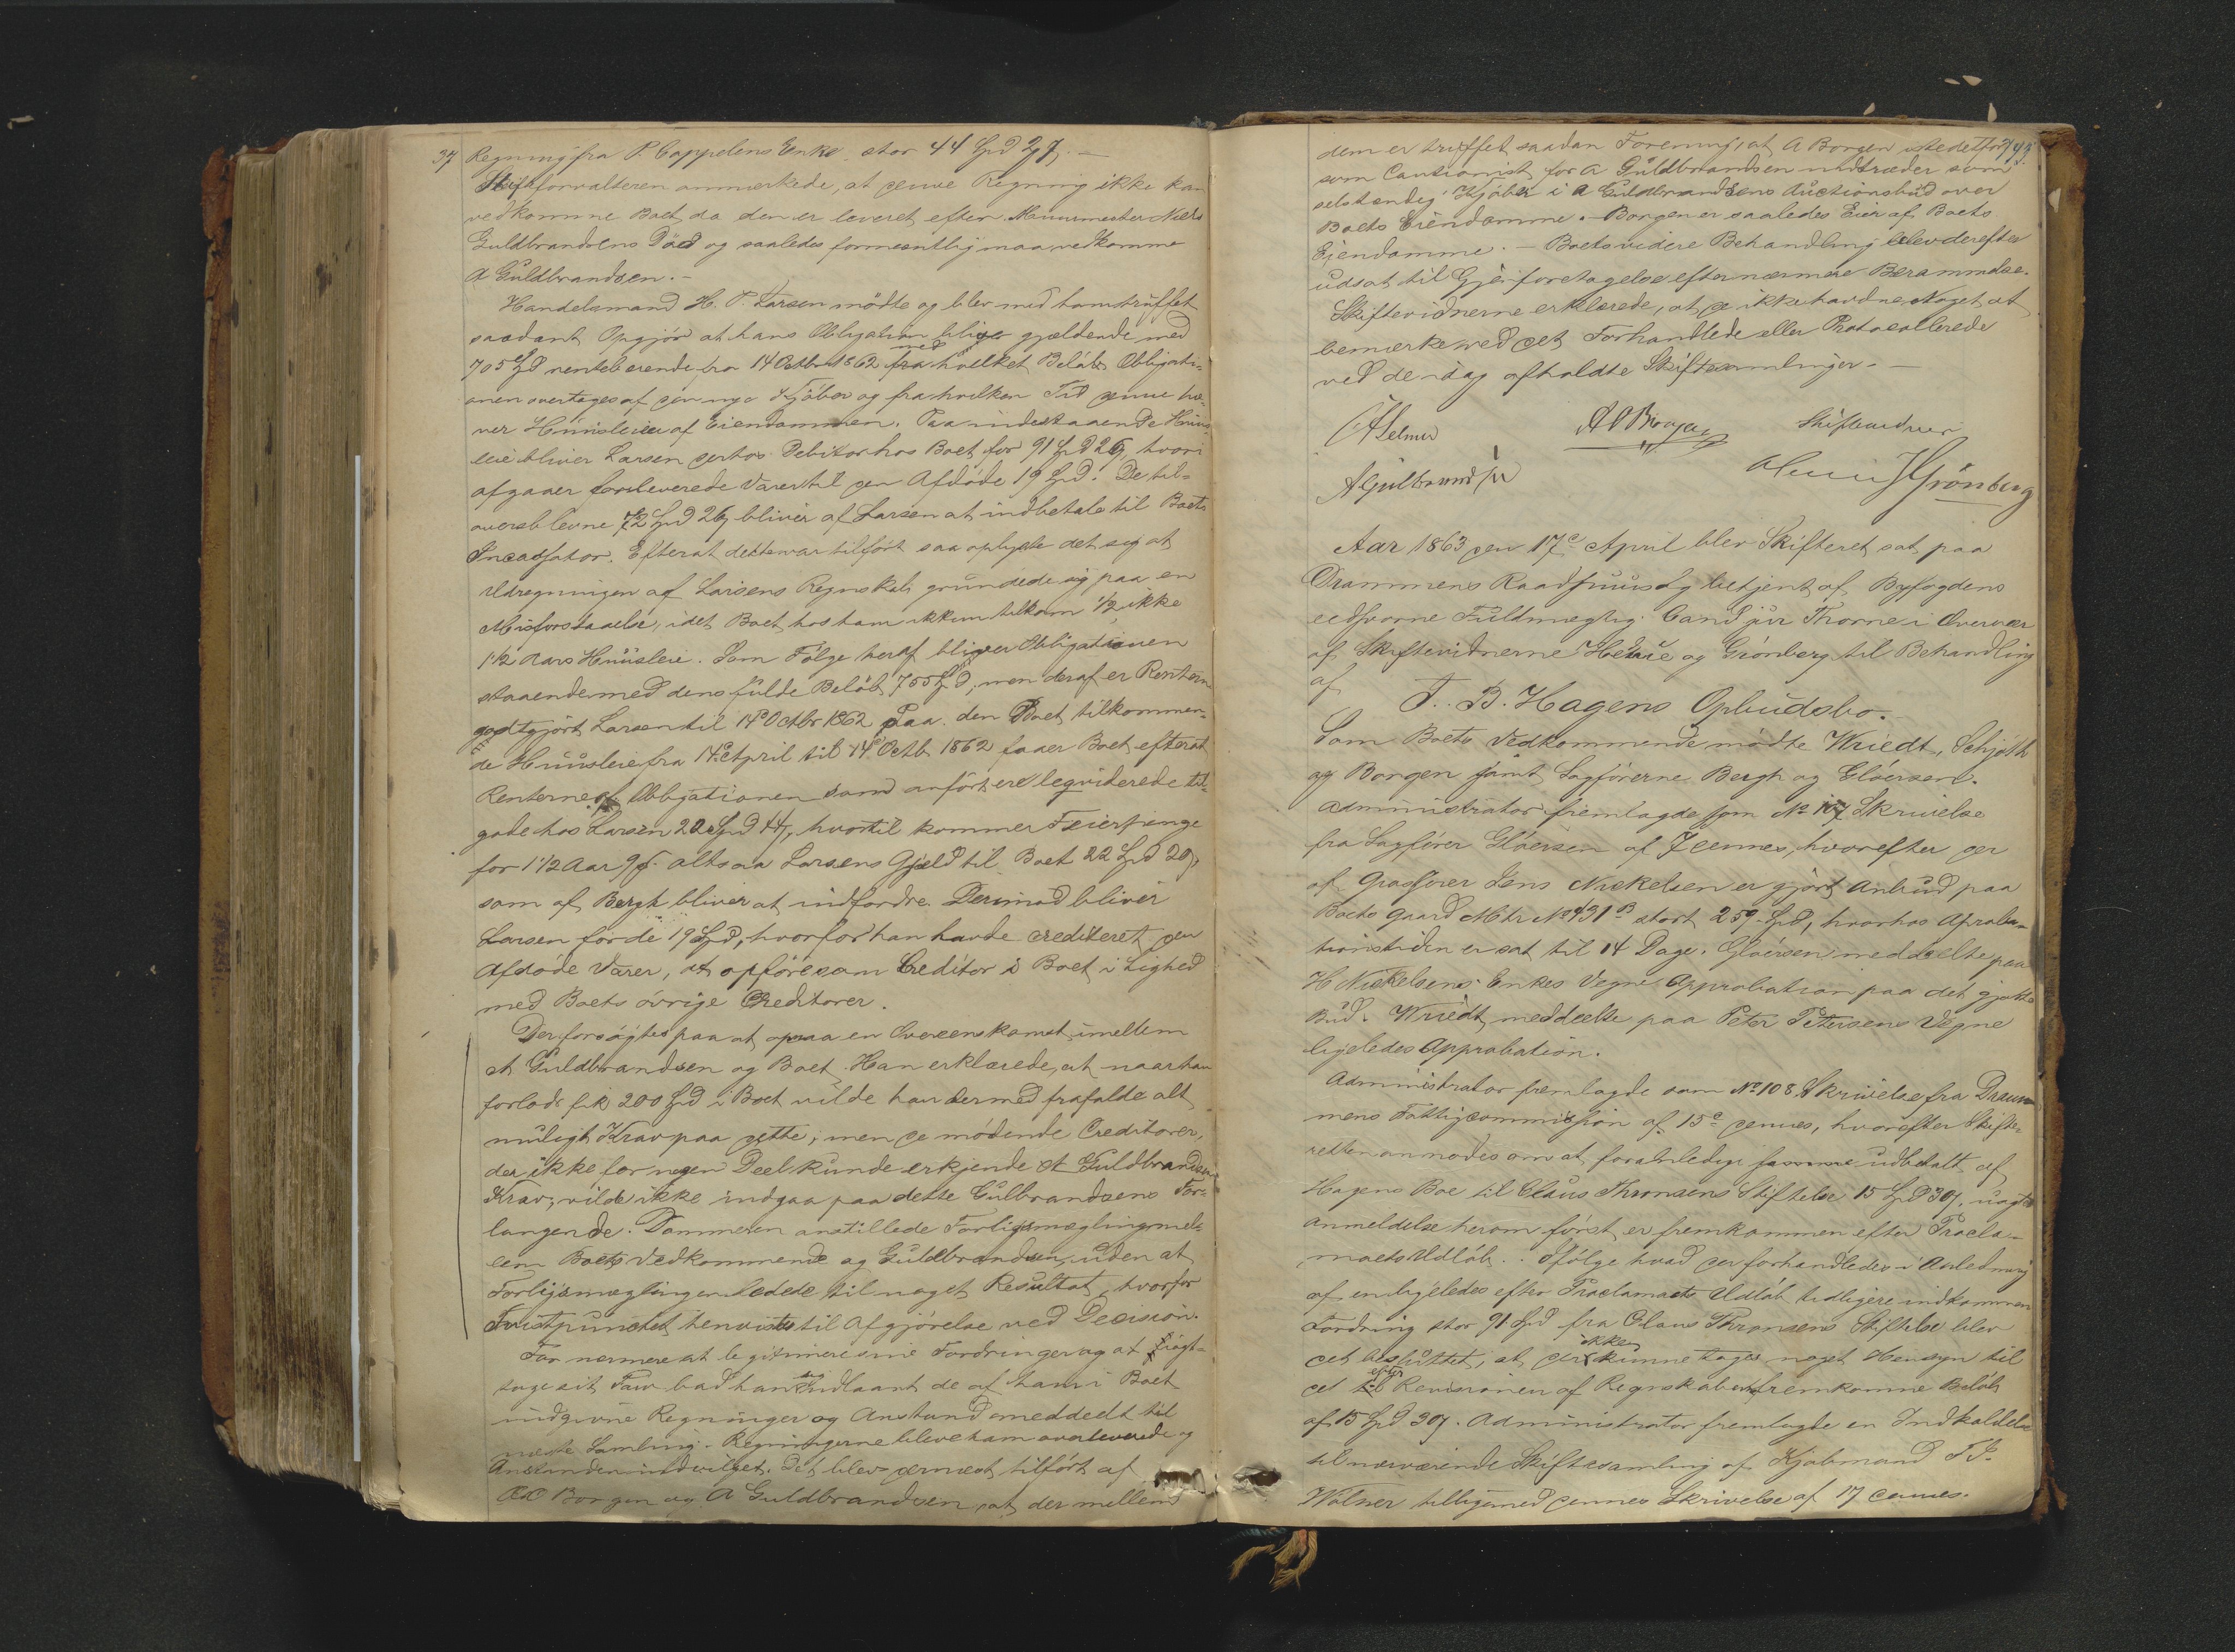 37 Regning fra P. Cappelens Enke stor 44 Spd 2 ß. —
Skifteforvalteren anmærkede, at denne Regning ikke kan
vedkomme Boet, da den er leveret efter Muurmester Niels
Guldbrandsens Död og saaledes formeentlig maa vedkomme
A Guldbrandsen. -
Handelsmand H. P. Larsen mödte og blev med ham truffet
saadant Opgjör at hans Obligation bliver gjældende med
705 Spd rentebærende fra 14 Octbr 1862 med hvilket Belöb Obligati-
onen overtages af den nye Kjöber og fra hvilken Tid denne hæ-
ver Huusleien af Eiendommen. Paa indestaaende Huus-
leie bliver Larsen derhos Debitor hos Boet for 91 Spd 26, hvori
afgaaer for leverede Varer til den Afdöde 19 Spd. De til-
oversblevne 72 Spd 26 bliver af Larsen at indbetale til Boets
Incassator. Efterat dette var tilfört saa oplyste det sig at
Udregningen af Larsens Regnskab grundede sig paa en
Misforstaaelse, idet Boet hos ham ikkun tilkom 1/2, ikke
1 1/2 Aars Huusleie. Som Fölge heraf bliver Obligationen
staaende med dens fulde Belöb 755 Spd, men deraf er Renterne
godtgjört Larsen til 14de Octbr 1862. Paa den Boet tilkommen-
de Huusleie fra 14de April til 14de Octb. 1862 faaer Boet efterat
Renterne af Obligationen som anfört ere liqviderede til-
gode hos Larsen 20 Spd 44, hvortil kommer Feierpenge
for 1 1/2 Aar altsaa Larsens Gjeld til Boet 22 Spd 20
som af Bergh bliver at indfordre. Derimod bliver
Larsen for de 19 Spd, hvorfor han havde crediteret den
Afdöde Varer, at opföre som Creditor i Boet i Lighed
med Boets övrige Creditorer.
Der forsögtes paa at opnaa en Overeenskomst imellem
A Guldbrandsen og Boet. Han erklærede, at naar han
forlods fik 200 Spd i Boet vilde han dermed frafalde alt
muligt Krav paa dette; men de mödende Creditorer,
der ikke for nogen Deel kunde erkjende A Guldbrandsens
Krav, vilde ikke indgaa paa dette Gulbrandsens For-
langende. Dommeren anstillede Forligsmægling mel-
lem Boets Vedkommende og Guldbrandsen, uden at
Forligsmæglingen ledede til noget Resultat, hvorfor
Tvistpunctet henvistes til Afgjörelse ved Decision.
For nærmere at legitimere sine Fordringer og at iagt-
tage sit Tarv bad han sig udlaant de af ham i Boet
indgivne Regninger og Anstand meddeelt til
næste Samling. Regningerne bleve ham overleverede og
Anstanden indvilget. Det blev dernæst tilfört af
Borgen og A Guldbrandsen, at der mellem
dem er truffet saadan Forening, at A Borgen istedetfor
som Cautionist for A Guldbrandsen indtræder som
selstændig Kjöber i A Guldbrandsens Auctionsbud over
Boets Eiendomme. - Borgen er saaledes Eier af Boets
Eiendomme. - Boets videre Behandling blev derefter
udsat til Gjenforetagelse efter nærmere Berammelse.
Skiftevidnerne erklærede, at de ikke havde Noget at
bemærke ved det Forhandlede eller Protocollerede
ved de idag afholdte Skiftesamlinger. -
Skiftevidner
Grönberg
Aar 1863 den 17de April blev Skifteret sat paa
Drammens Raadhuus og betjent af Byfogdens
eedsvorne Fuldmægtig Cand jur Thorne i Overvær
af Skiftevidnerne og Grönberg til Behandling
af
B. Hagens Opbudsbo.
Som Boets Vedkommende mödte Wriedt, Schjöth
og Borgen samt Sagförerne Bergh og Glöersen.
Administrator fremlagde som No 107 Skrivelse
fra Sagförer Glöersen af 7 dennes, hvorefter der
af Jens Nickelsen er gjort Anbud paa
Boets Gaard Mtr No 431 B stort 259 Spd, hvorhos Aproba-
tionstiden er sat til 14 Dage. Glöersen meddeelte paa
H Nickelsens Enkes Vegne Approbation paa det gjorte
Bud. Wriedt meddeelte paa Peter Petersens Vegne
ligeledes Approbation.
Administrator fremlagde som No 108, Skrivelse fra Dram-
mens Fattigcommission af 15de dennes, hvorefter Skifte-
retten anmodes om at foranledige udbetalt af
Hagens Boe til Claus Thronsens Stiftelse 15 Spd 30, uagtet
Anmeldelse herom först er fremkommen efter Procla-
maets Udlöb. Ifölge hvad der forhandledes i Anledning
af en ligeledes efter Proclamaets Udlöb tidligere indkommen
Fordring stor 91 Spd fra Claus Thronsens Stiftelse blev
det besluttet, at der ikke kunne tages noget Hensyn til
det efter Revisionen af Regnskabet fremkomne Belöb
af 15 Spd 30. Administrator fremlagde en Indkaldelse
til nærværende Skiftesamling af Kjöbmand
Wölner tilligemed dennes Skrivelse af 17 dennes.